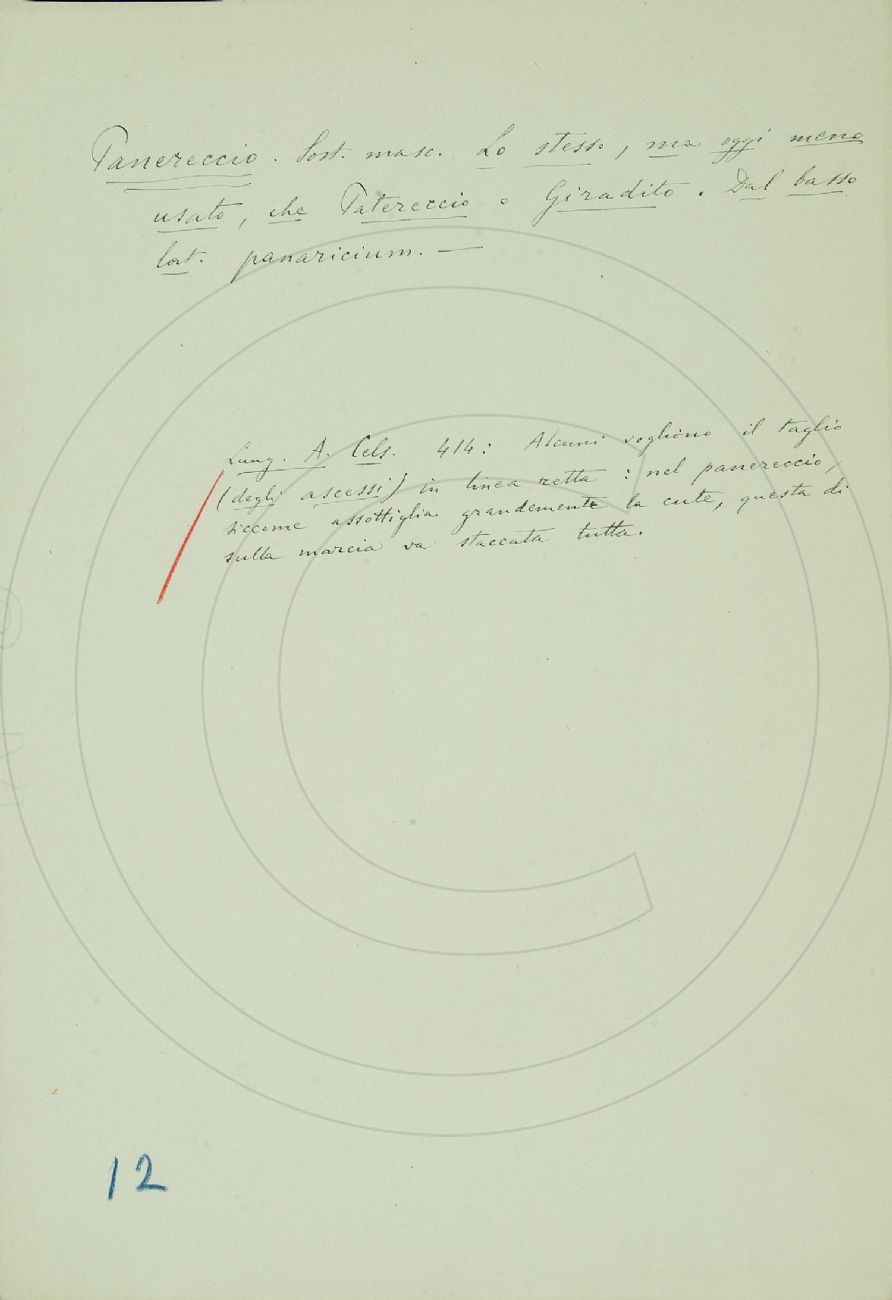 Panereccio. Sost. masc. Lo stesso, ma oggi meno
usato, che Patereccio o Giradito. Dal basso
lat. panaricium. —
Lung. A. Cels. 414: Alcuni vogliono il taglio
(degli ascessi) in linea retta: nel panereccio,
siccome assottiglia grandemente la cute, questa di
sulla marcia va staccata tutta.
12